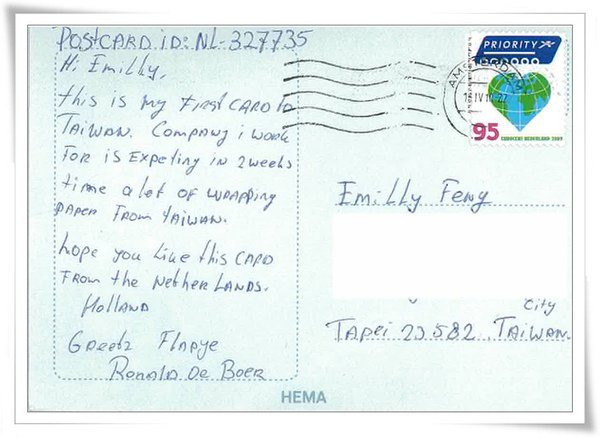 POSTCARD ID: NL-327735
Hi Emilly,
this is my first CARD to
TAIWAN. Company i work
FOR is Expeting in 2 weeks
time a lot of wrapping
paper From tAiwAN.
hope you like this CARD
FROM the NetherLANDS.
Holland
Greetz Flapye
Ronald De Boer
PRIORITY
AMSTERDAM
95
EUROCENT NEDERLAND 2009
Emilly Feng
City
TApei 23582, TAIWAN.
HEMA